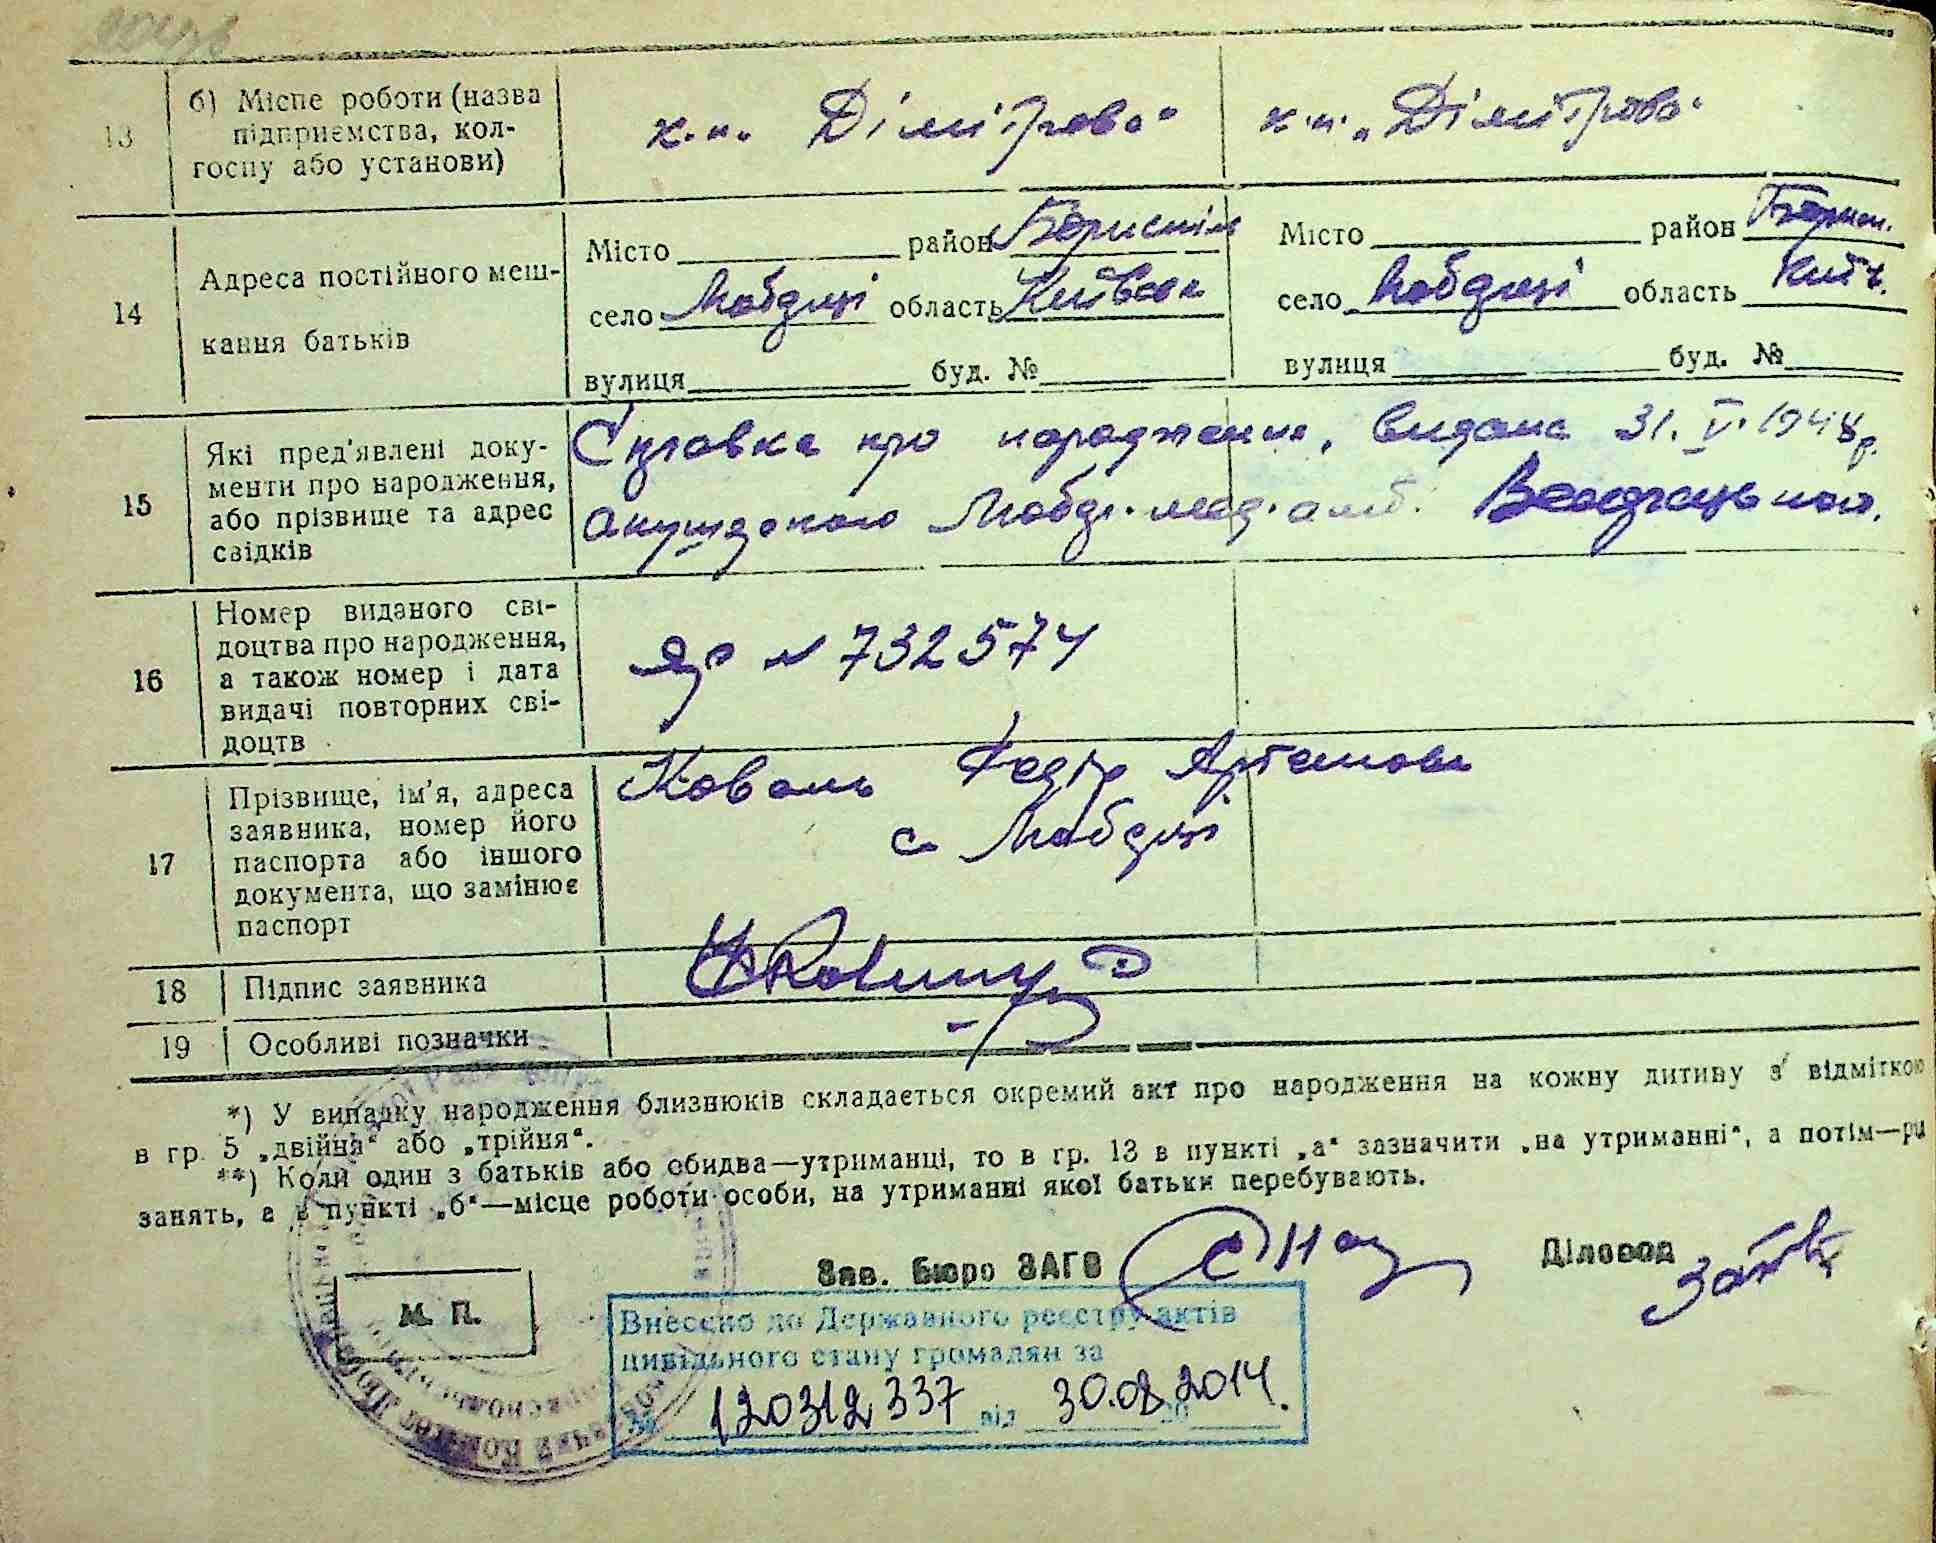 13
б) Місце роботи (назва
підприємства, кол-
госпу або установи)
к.п. „Дімітрова“
к.п. „Дімітрова“
14
Адреса постійного меш-
кання батьків
Місто район Бориспіль
село Любарці область Київська
вулиця буд. №
Місто район Борисп.
село Любарці область Київ.
вулиця буд. №
15
Які пред'явлені доку-
менти про народження,
або прізвище та адрес
свідків
Справка про народження, видана 31.V.1948р.
акушеркою Любар. мед. амб.
16
Номер виданого сві-
доцтва про народження,
а також номер і дата
видачі повторних сві-
доцтв
№ 732574
17
Прізвище, ім'я, адреса
заявника, номер його
паспорта або іншого
документа, що замінює
паспорт
Коваль Федір Артемов.
с. Любарці
18
Підпис заявника
19
Особливі позначки
*) У випадку народження близнюків складається окремий акт про народження на кожну дитину з відміткою
в гр. 5 „двійня“ або „трійня“.
**) Коли один з батьків або обидва—утриманці, то в гр. 13 в пункті „а“ зазначити „на утриманні“, а потім—рід
занять, а в пункті „б“—місце роботи особи, на утриманні якої батьки перебувають.
Зав. бюро ЗАГС
Діловод
М. П.
Внесено до Державного реєстру актів
цивільного стану громадян за
№ 120312337 від 30.08.2014.